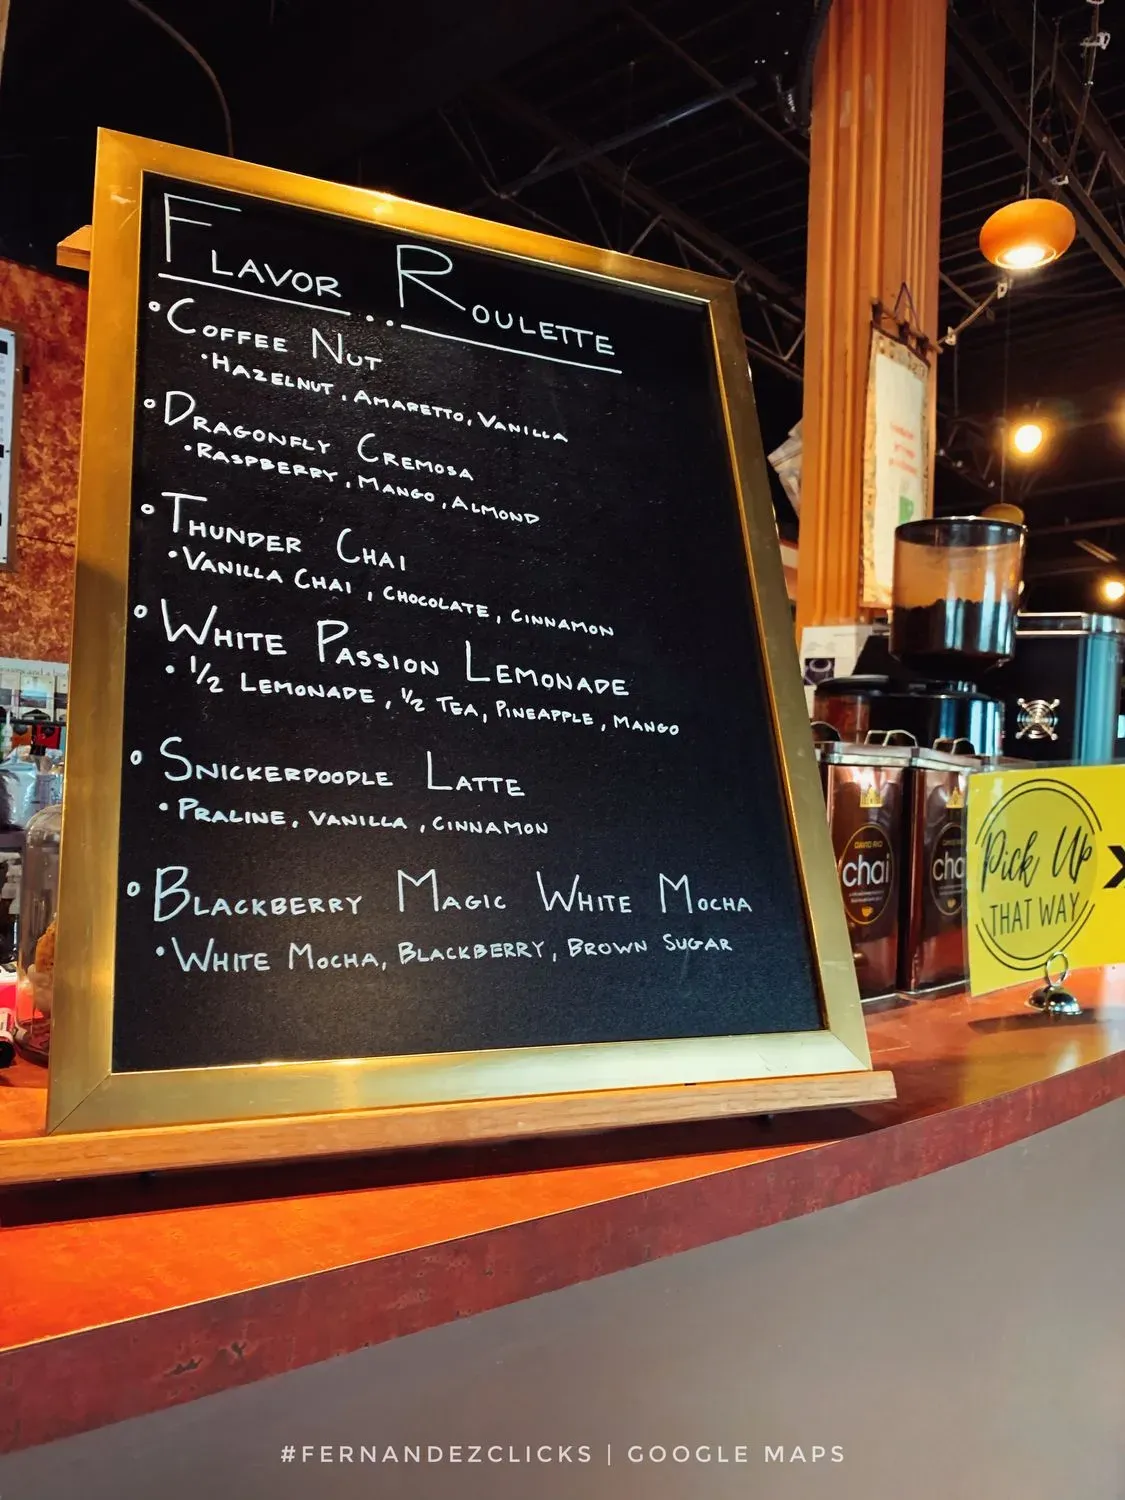 FLAVOR .. ROULETTE
◦ COFFEE NUT
• HAZELNUT, AMARETTO, VANILLA
◦ DRAGONFLY CREMOSA
• RASPBERRY, MANGO, ALMOND
◦ THUNDER CHAI
• VANILLA CHAI, CHOCOLATE, CINNAMON
◦ WHITE PASSION LEMONADE
• 1/2 LEMONADE, 1/2 TEA, PINEAPPLE, MANGO
◦ SNICKERDOODLE LATTE
• PRALINE, VANILLA, CINNAMON
◦ BLACKBERRY MAGIC WHITE MOCHA
• WHITE MOCHA, BLACKBERRY, BROWN SUGAR
DAVID RIO
chai
Pick Up
THAT WAY
#FERNANDEZCLICKS | GOOGLE MAPS